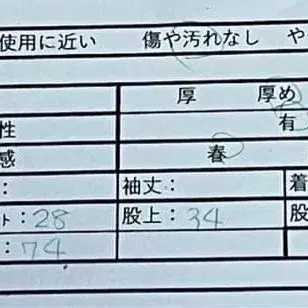 使用に近い 傷や汚れなし や
厚 厚め
性 有
感 春
: 袖丈: 着
ト:28 股上:34 股
:74